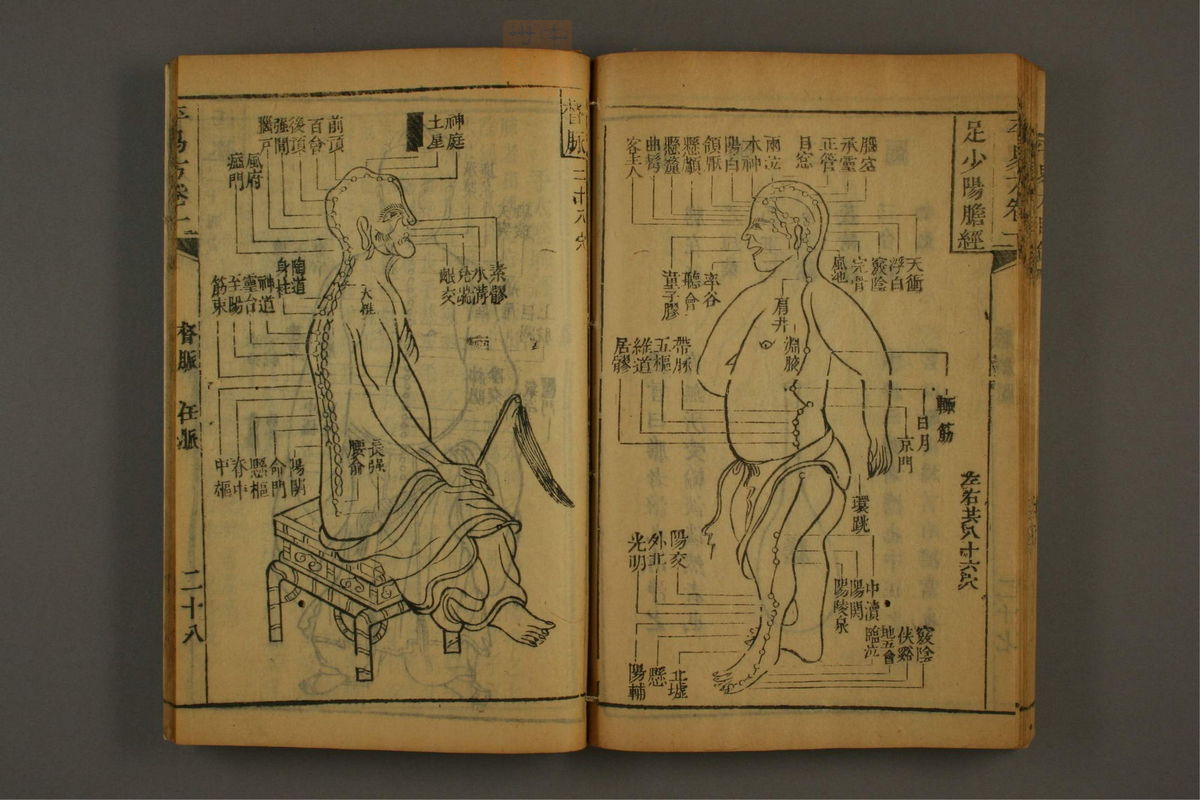 足少陽膽經
腦空
承靈
正營
目窓
雨泣
本神
陽白
頷厭
懸顱
懸釐
曲鬂
客主人
天衝
浮白
竅陰
完骨
風池
率谷
聽會
童子膠
肩井
淵腋
帶脉
五樞
維道
居髎
輒筋
日月
京門
環跳
左右共八十六穴
陽交
外丘
光明
中瀆
陽関
陽陵泉
竅陰
俠谿
地五會
臨泣
丘墟
懸
陽輔
督脈
神庭
土星
前頂
百會
後頂
强間
腦戶
風府
瘂門
素髎
水溝
兌端
齦交
陶道
身柱
神道
靈台
至陽
筋束
大椎
長强
腰俞
陽関
命門
懸樞
脊中
中樞
督脈 任脈
二十八